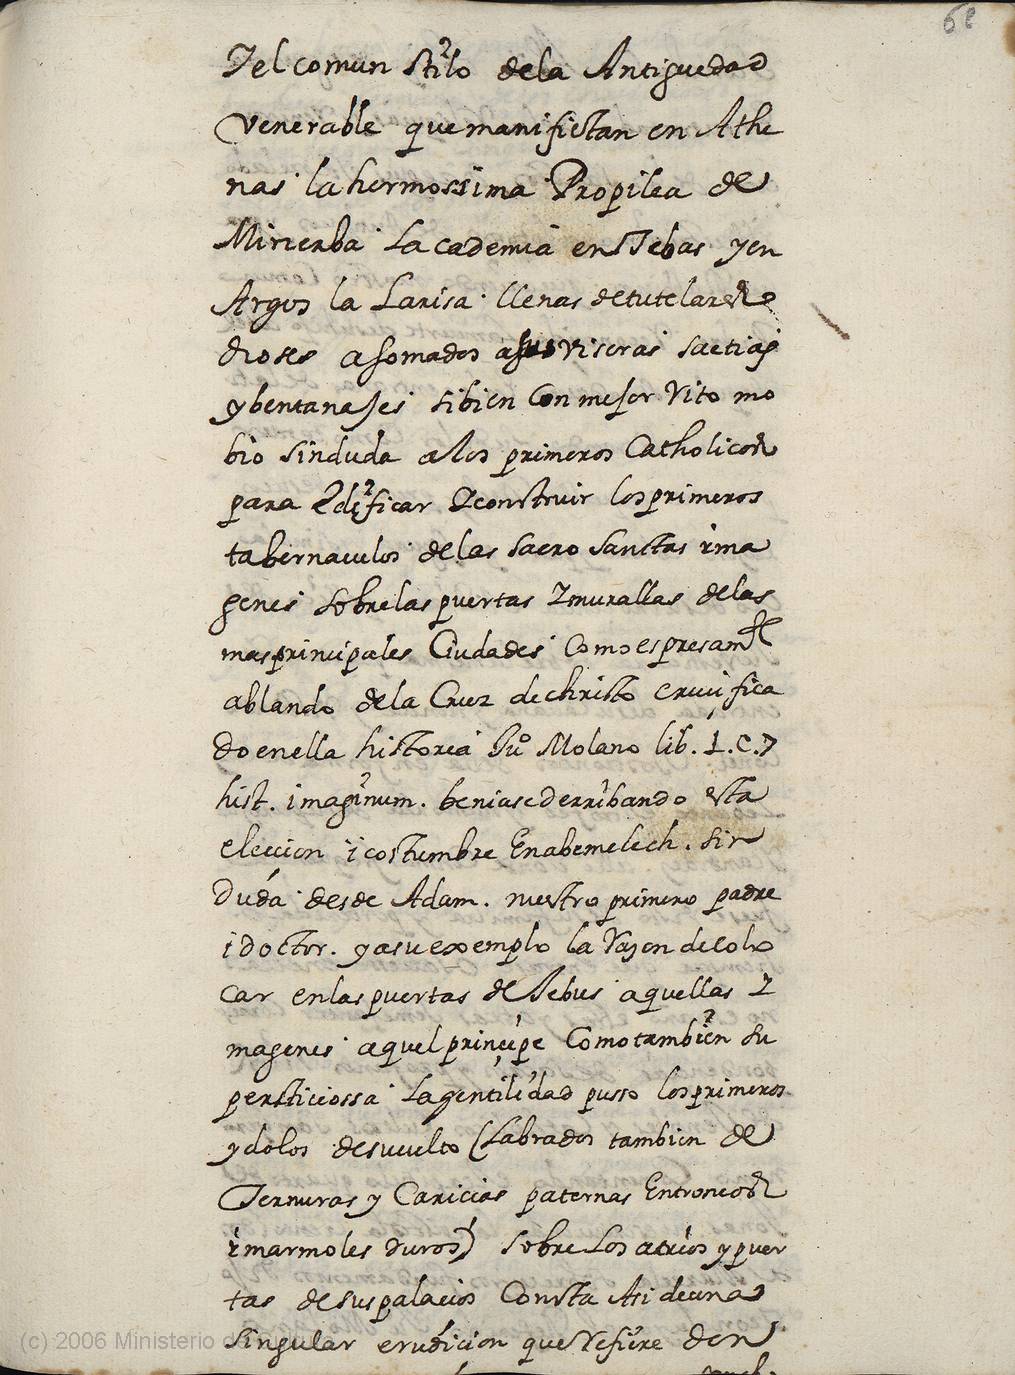 68
Del comun stilo dela Antiguedad
Venerable que manifiestan en Athe
nas la hermossima Propilea de
Minerba La cademia en Tebas y en
Argos la Larisa llenas de tutelares
dioses asomados a sus viseras saetias
y bentanajes si bien Con mejor Vito mo
bio sin duda a los primeros Catholicos
para Edificar I construir los primeros
tabernaculos de las sacro sanctas ima
genes sobre las puertas I murallas de las
mas principales Ciudades Como espresamte
ablando de la Cruz de christo crucifica
do en ella historia Juo Molano lib. 1. C. 7
hist. imaginum. beniase derribando esta
eleccion i costumbre En abemelech. Sin
Duda desde Adam. nuestro primero padre
i doctor. y a su exemplo la Razon de colo
car en las puertas de Jebus aquellas I
magenes aquel principe Como tambien su
persticiossa La gentilidad pusso los primeros
ydolos de su culto (Labrados tambien de
Ternuras y Caricias paternas En troncos
i marmoles duros) sobre Los atrios y puer
tas de sus palacios Consta Asi de una
singular erudicion que Refiere don
(c) 2006 Ministerio de